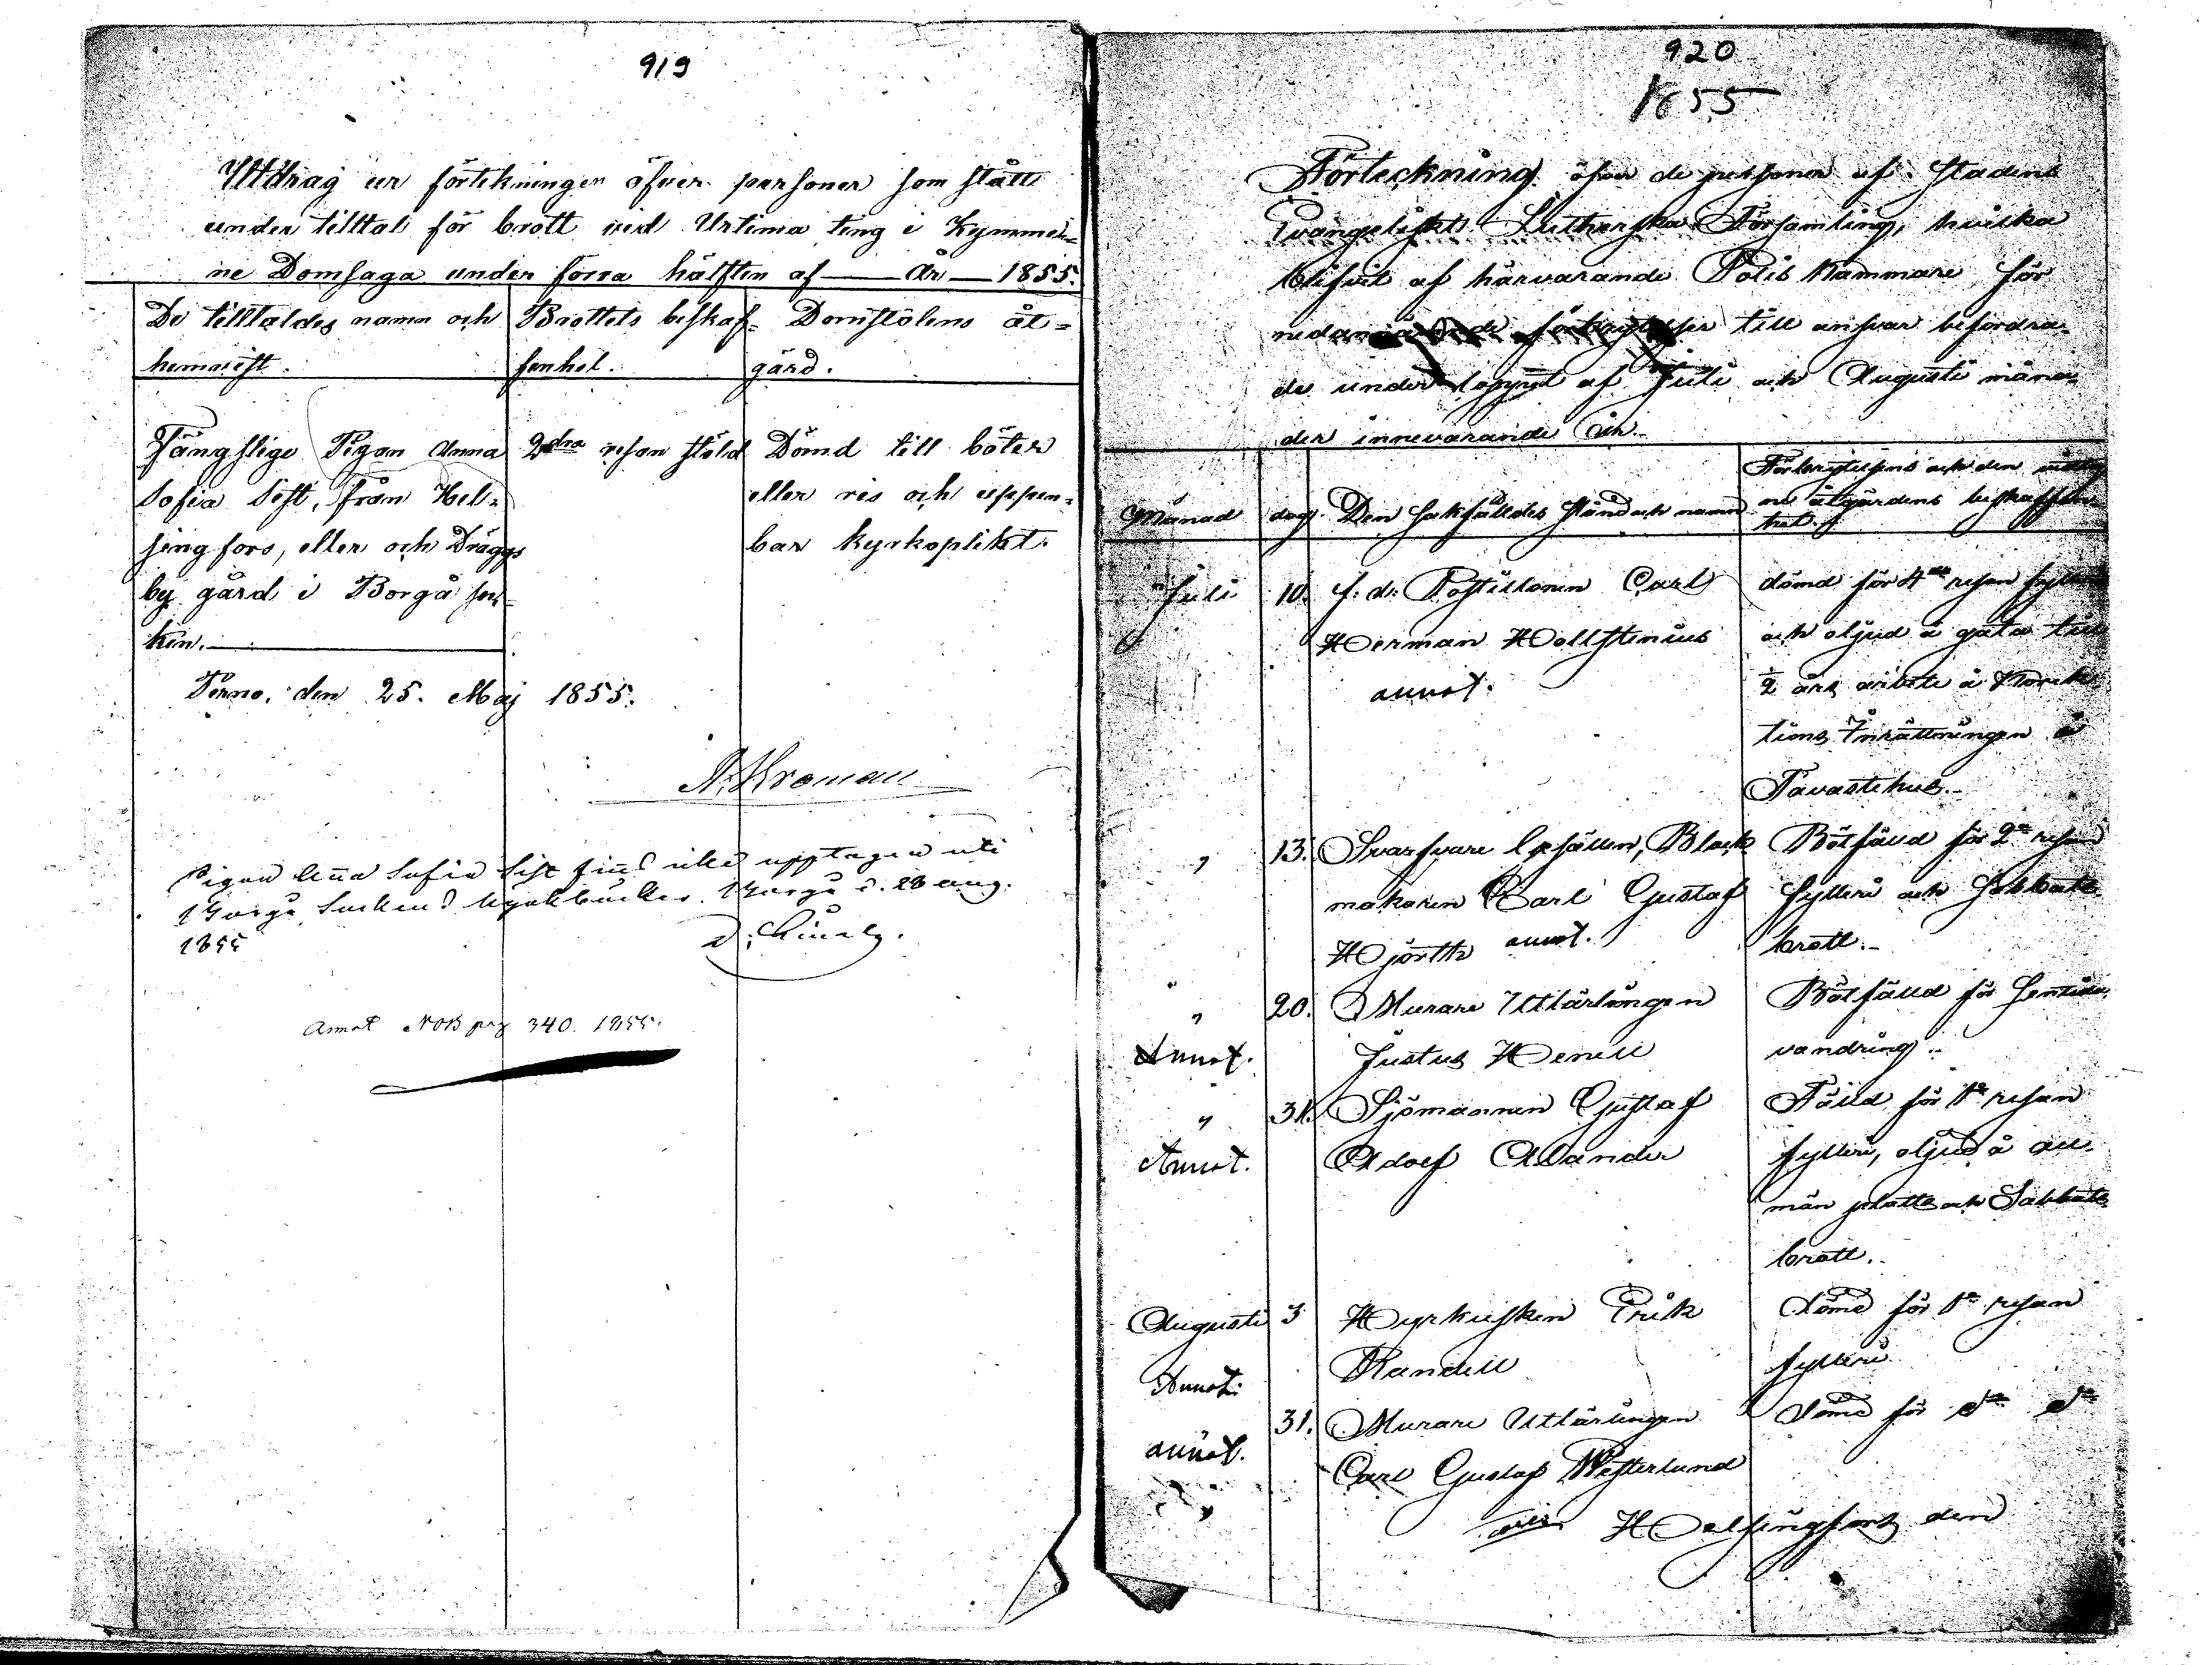 919
Utdrag ur förtekningen öfver personer som stått
under tilltal för brott vid Urtima ting i Kymme-
ne Domsaga under förra hälften af — År — 1855.
De tilltaldes namn och
hemvist.
Brottets beskaf-
fenhet.
Domstolens åt-
gärd.
Fängslige Pigan Anna
Sofia Sist, från Hel-
singfors, eller och Dräggs
by gård i Borgå soc-
ken.
2dra resan stöld
Dömd till böter
eller ris och uppen-
bar kyrkoplikt.
Perno, den 25. Maj 1855.
Pigan Anna Sofia Sist finns icke upptagen uti
Borgå Sockens kyrkböcker. Borgå d. 28 aug.
1855
Annot pag 340. 1855.
920
1855
Förteckning öfver de personer af Stadens
Evangeliskt Lutherska Församling, hvilka
blifvit af härvarande Polis Kammare för
nedan förbrytelser till ansvar befordra-
de under loppet af Juli och Augusti måna-
der innevarande år.
Månad
dag.
Den sakfälldes stånd och namn
Förbrytelsens och den
åtgärdens beskaffen-
het.
Juli 10. f. d. Postillonen Carl
Herman Hollstenius
annot.
dömd för 4de resan fylleri
och oljud å gata till
½ års arbete å Korrek-
tions Inrättningen å
Tavastehus.
" 13. Svarfvare Gesällen, Block
makaren Carl Gustaf
Hjörtt annot.
Bötfälld för 2a resan
fylleri och Sabbats
brott.
" 20. Murare Utlärlingen
Annot. Justus Henell
Bötfälld för
vandring.
" 31. Sjömannen Gustaf
Annot. Adolf Alander
Fälld för 1a resan
fylleri, oljud å all-
män plats och Sabbats
brott.
Augusti 3 Hyrkusken Erik
Annot. Randell
dömd för 1a resan
fylleri
31. Murare Utlärlingen
annot. Carl Gustaf Westerlund
dömd för do do
Helsingfors den